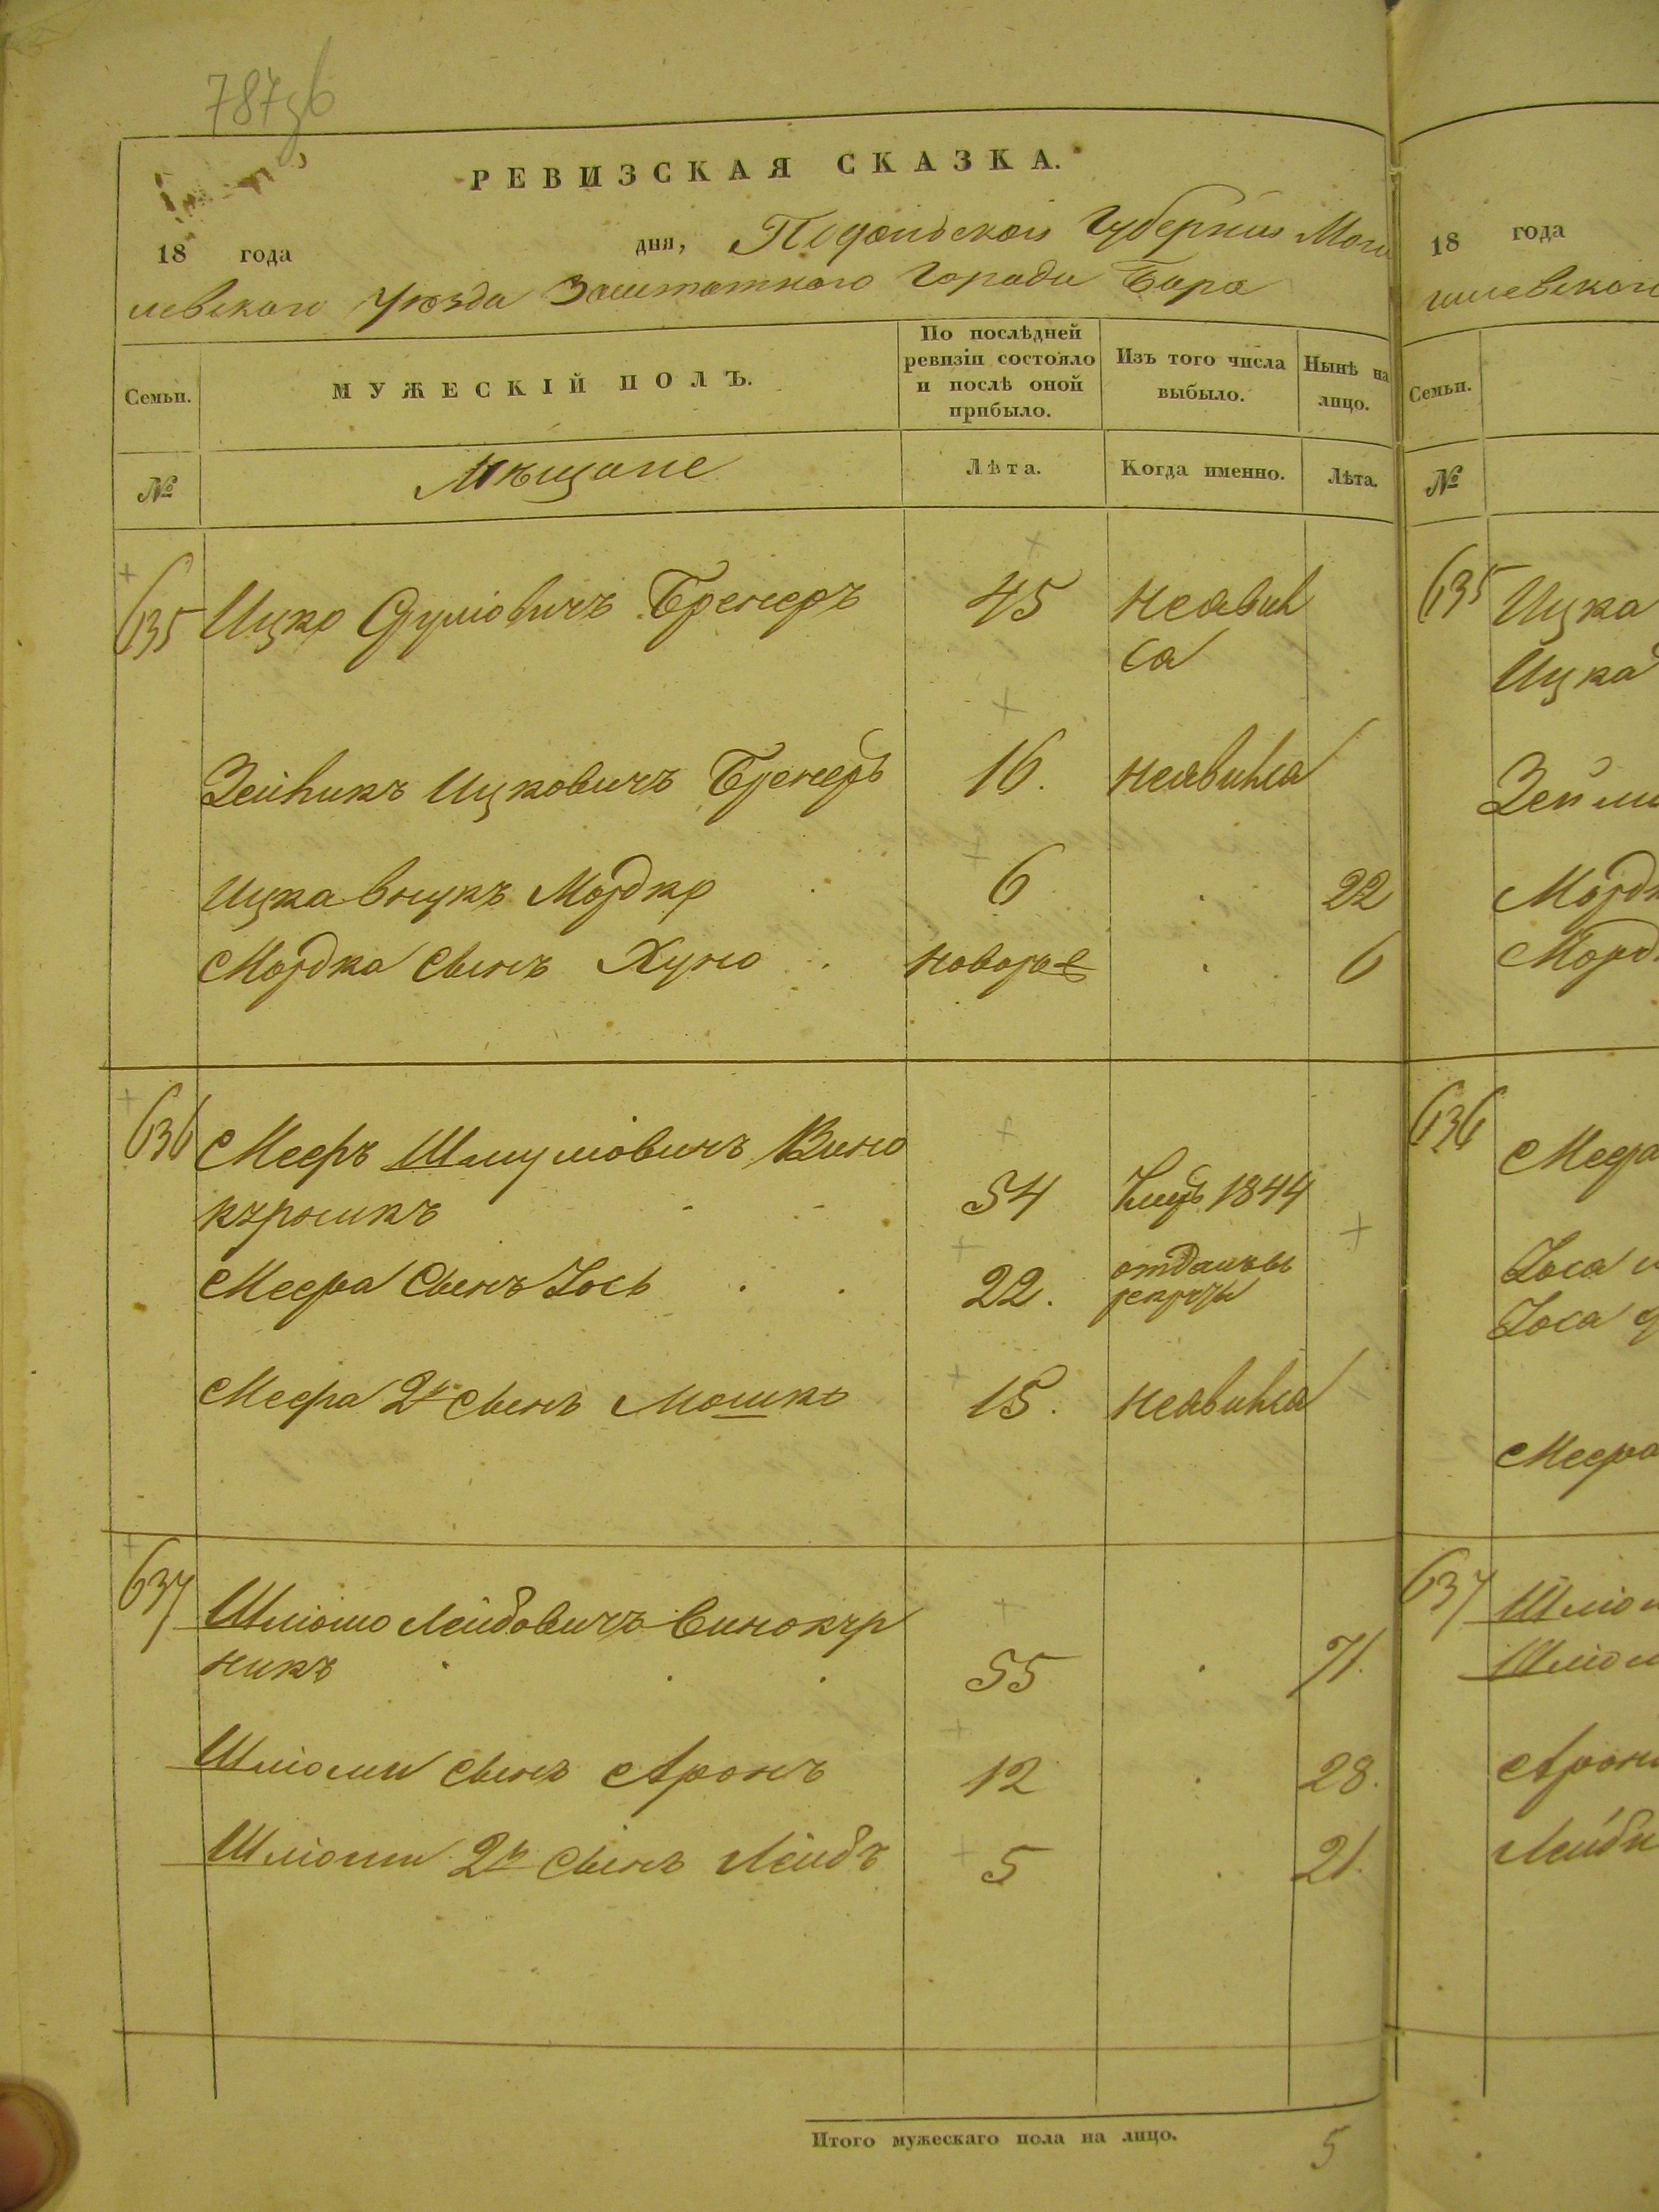 787зв
РЕВИЗСКАЯ СКАЗКА.
18 года дня, Подольской Губернии Моги
левского Уѣзда Заштатного Города Бара
Семьи.
МУЖЕСКІЙ ПОЛЪ.
По послѣдней
ревизіи состояло
и послѣ оной
прибыло.
Изъ того числа
выбыло.
Нынѣ на
лицо.
№
Мѣщане
Лѣта.
Когда именно.
Лѣта.
635 Ицко Сруліовичъ Бренеръ 45 неявил
ся
16. неявился
Ицковичъ Бренеръ
Ицка внукъ Мордко 6 22
Мордка Сынъ Хуно новорож 6
636 Мееръ Шмуліовичъ Вино
курникъ 54 Умеръ 1844
Меера Сынъ Іось 22. отданъ въ
рекруты
Меера 2й Сынъ Мошко 15. неявился
637 Шліомо Лейбовичъ Винокур
никъ 55 71.
Шліоми сынъ Аронъ 12 28.
Шліоми 2й сынъ Лейбъ 5 21.
Итого мужескаго пола на лицо. 5
18 года
гилевского
Семьи.
№
635 Ицка
Ицка
Зейли
Мордк
Мордк
636 Меера
Іоса
Іоса
Меера
637 Шліом
Шліом
Арона
Лейби